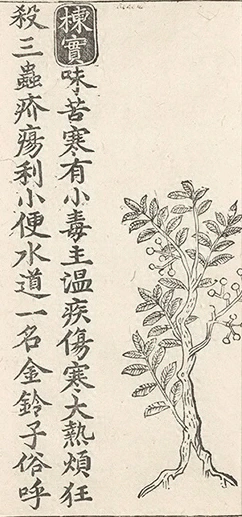 楝實味苦寒有小毒主温疾傷寒大熱煩狂
殺三蟲疥瘍利小便水道一名金鈴子俗呼